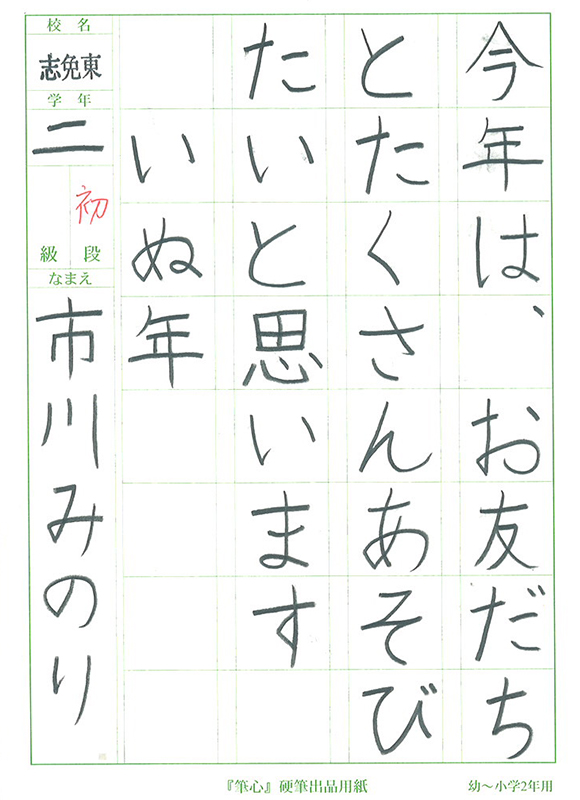 今年は、お友だち
とたくさんあそび
たいと思います
いぬ年
校名
志免東
学年
二
初
級段
なまえ
市川みのり
『筆心』硬筆出品用紙
幼〜小学2年用